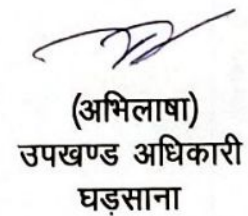 (अभिलाषा)
उपखण्ड अधिकारी
घड़साना